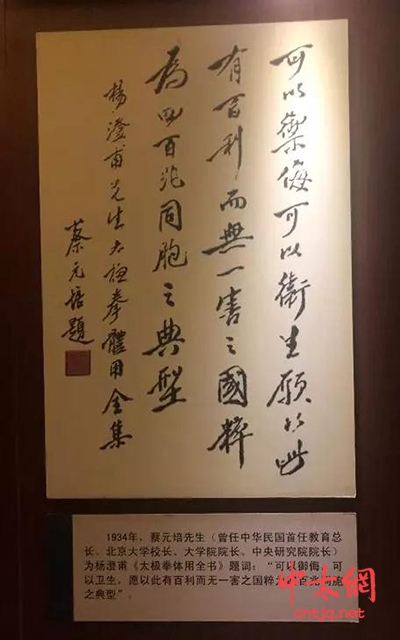 可以禦侮可以衛生願以此
有百利而無一害之國粹
為四百兆同胞之典型
楊澄甫先生太極拳體用全集
蔡元培題
1934年，蔡元培先生（曾任中华民国首任教育总
长、北京大学校长、大学院院长、中央研究院院长）
为杨澄甫《太极拳体用全书》题词：“可以御侮，可
以卫生，愿以此有百利而无一害之国粹为百兆同胞
之典型”。
中太网
cntjq.net